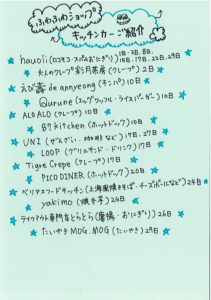 ふわふわショップ
キッチンカーご紹介
hauoli(ロコモコ・スパムおにぎり) 1日・3日・8日
15日・17日・22日・29日
大人のクレープ彩月茶房(クレープ) 2日
えび壽 de annyeong(キンパ) 10日
Qurune(エッグワッフル・ライスバーガー) 10日
ALOALO(クレープ) 10日
B9 kitchen(ホットドック) 10日
UNI(ぜんざい・珈琲など) 17日・27日
LOOP(グリルサンド・ドリンク) 17日
Tigre Crepe(クレープ) 17日
PICO DINER(ホットドック) 20日
ベリアスフードキッチン(上海風焼きそば・チーズボールなど) 24日
yakimo(焼き芋) 24日
テイクアウト専門店とらとら(唐揚・おにぎり) 26日
たいやきMOG.MOG(たいやき) 29日